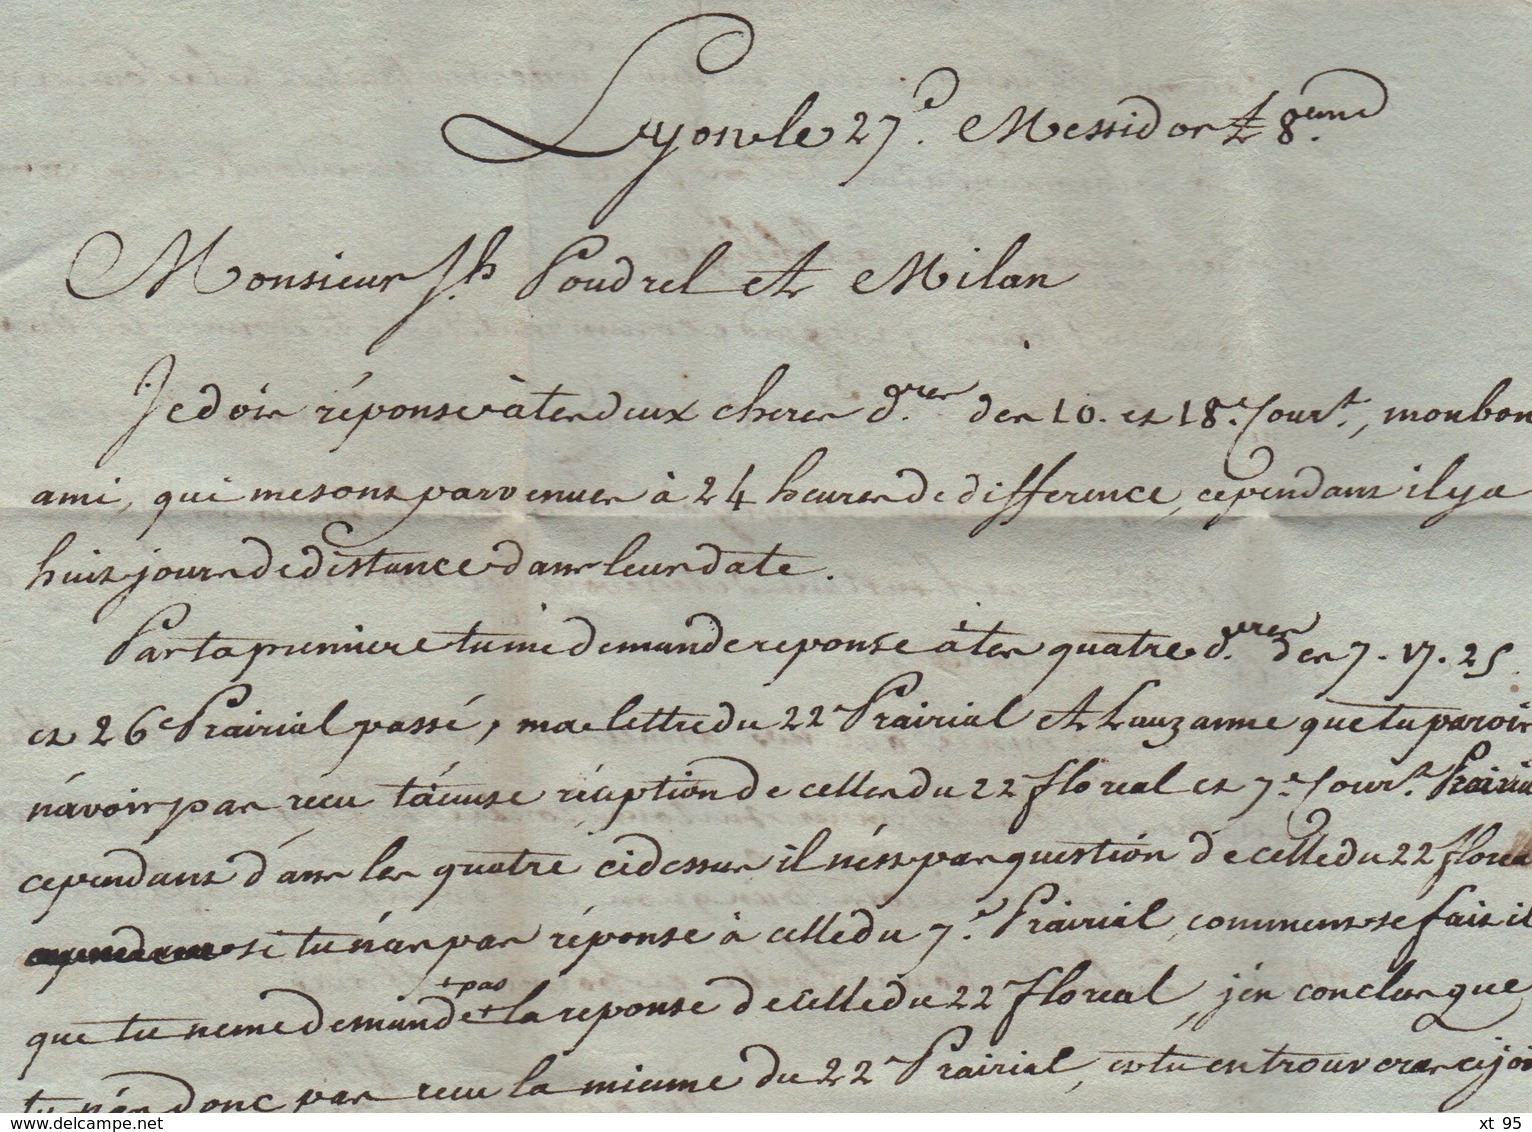 Lyon le 27.e Messidor & 8.eme
Monsieur J.h Poudrel et Milan
Je dois réponse à tes deux cheres d.res des 10. et 18.e Cour.t, mon bon
ami, qui me sont parvenues à 24 heures de difference, cependant il y a
huit jours de distance dans leur date.
Par ta premiere tu me demande reponse à tes quatre d.eres des 7. 17. 25
et 26 Prairial passé, ma lettre du 22 Prairial et Lauzanne que tu parois
n'avoir pas recu t'acuse réception de celles du 22 floreal et 7.e Cour.t Prairia
cependant dans les quatre ci dessus il n'est pas question de celle du 22 florea
si tu n'as pas réponse à celle du 7.e Prairial, comment se fait il
+ pas
que tu ne me demande + la reponse de celle du 22 floreal, j'en conclus que
tu n'as donc pas recu la mienne du 22 Prairial, et tu en trouveras cijoi
delcampe.net
xt_95